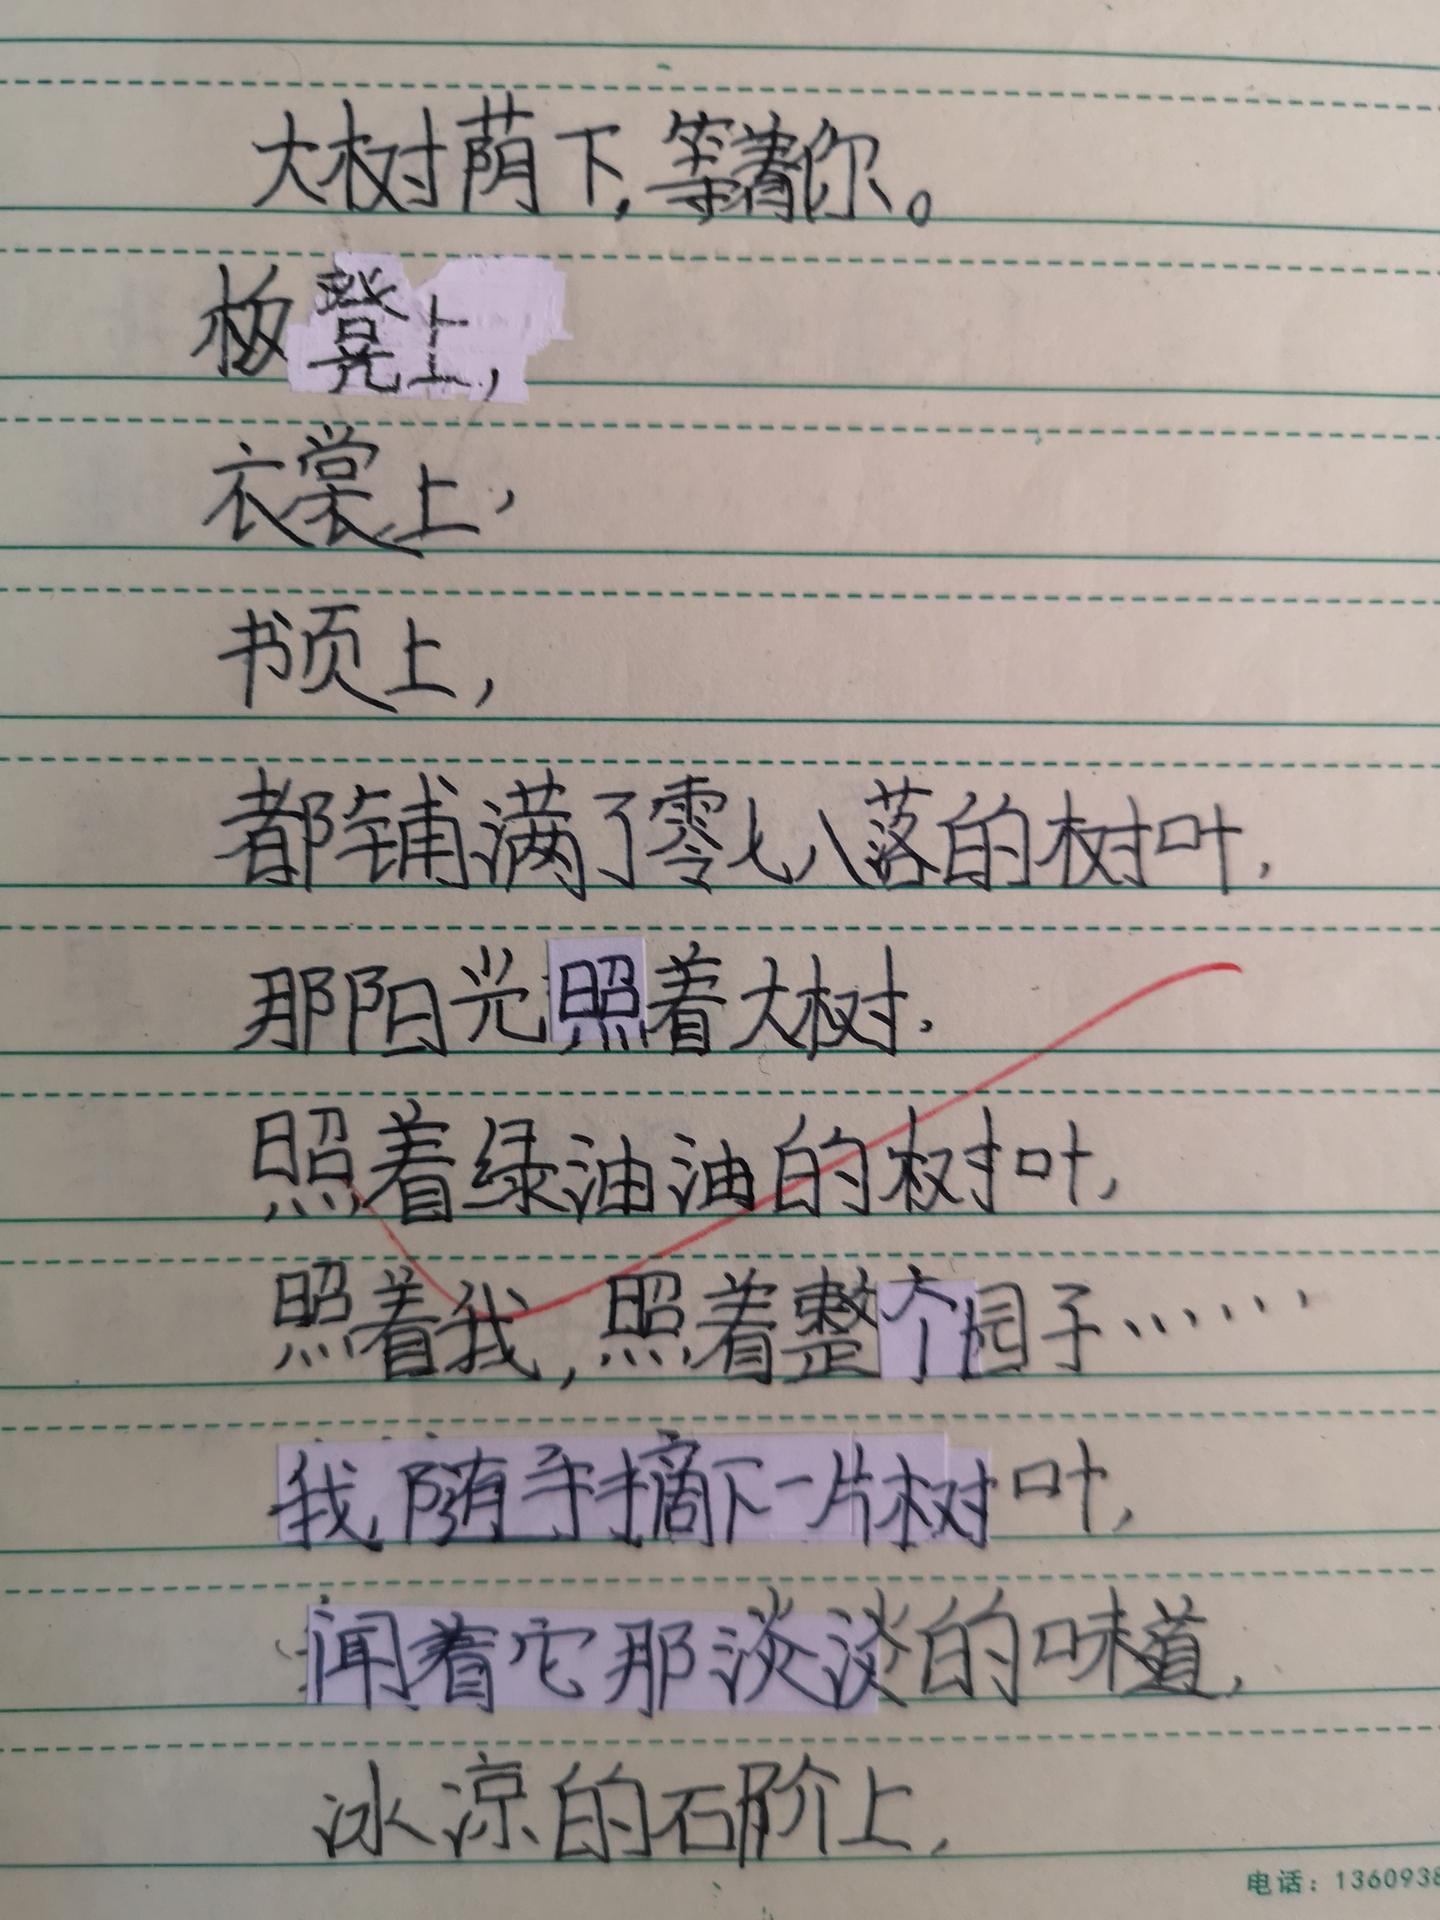 大树荫下,等着你。
板凳上,
衣裳上,
书页上,
都铺满了零七八落的树叶,
那阳光照着大树,
照着绿油油的树叶,
照着我,照着整个园子……
我随手摘下一片树叶,
闻着它那淡淡的味道,
冰凉的石阶上,
电话：1360938